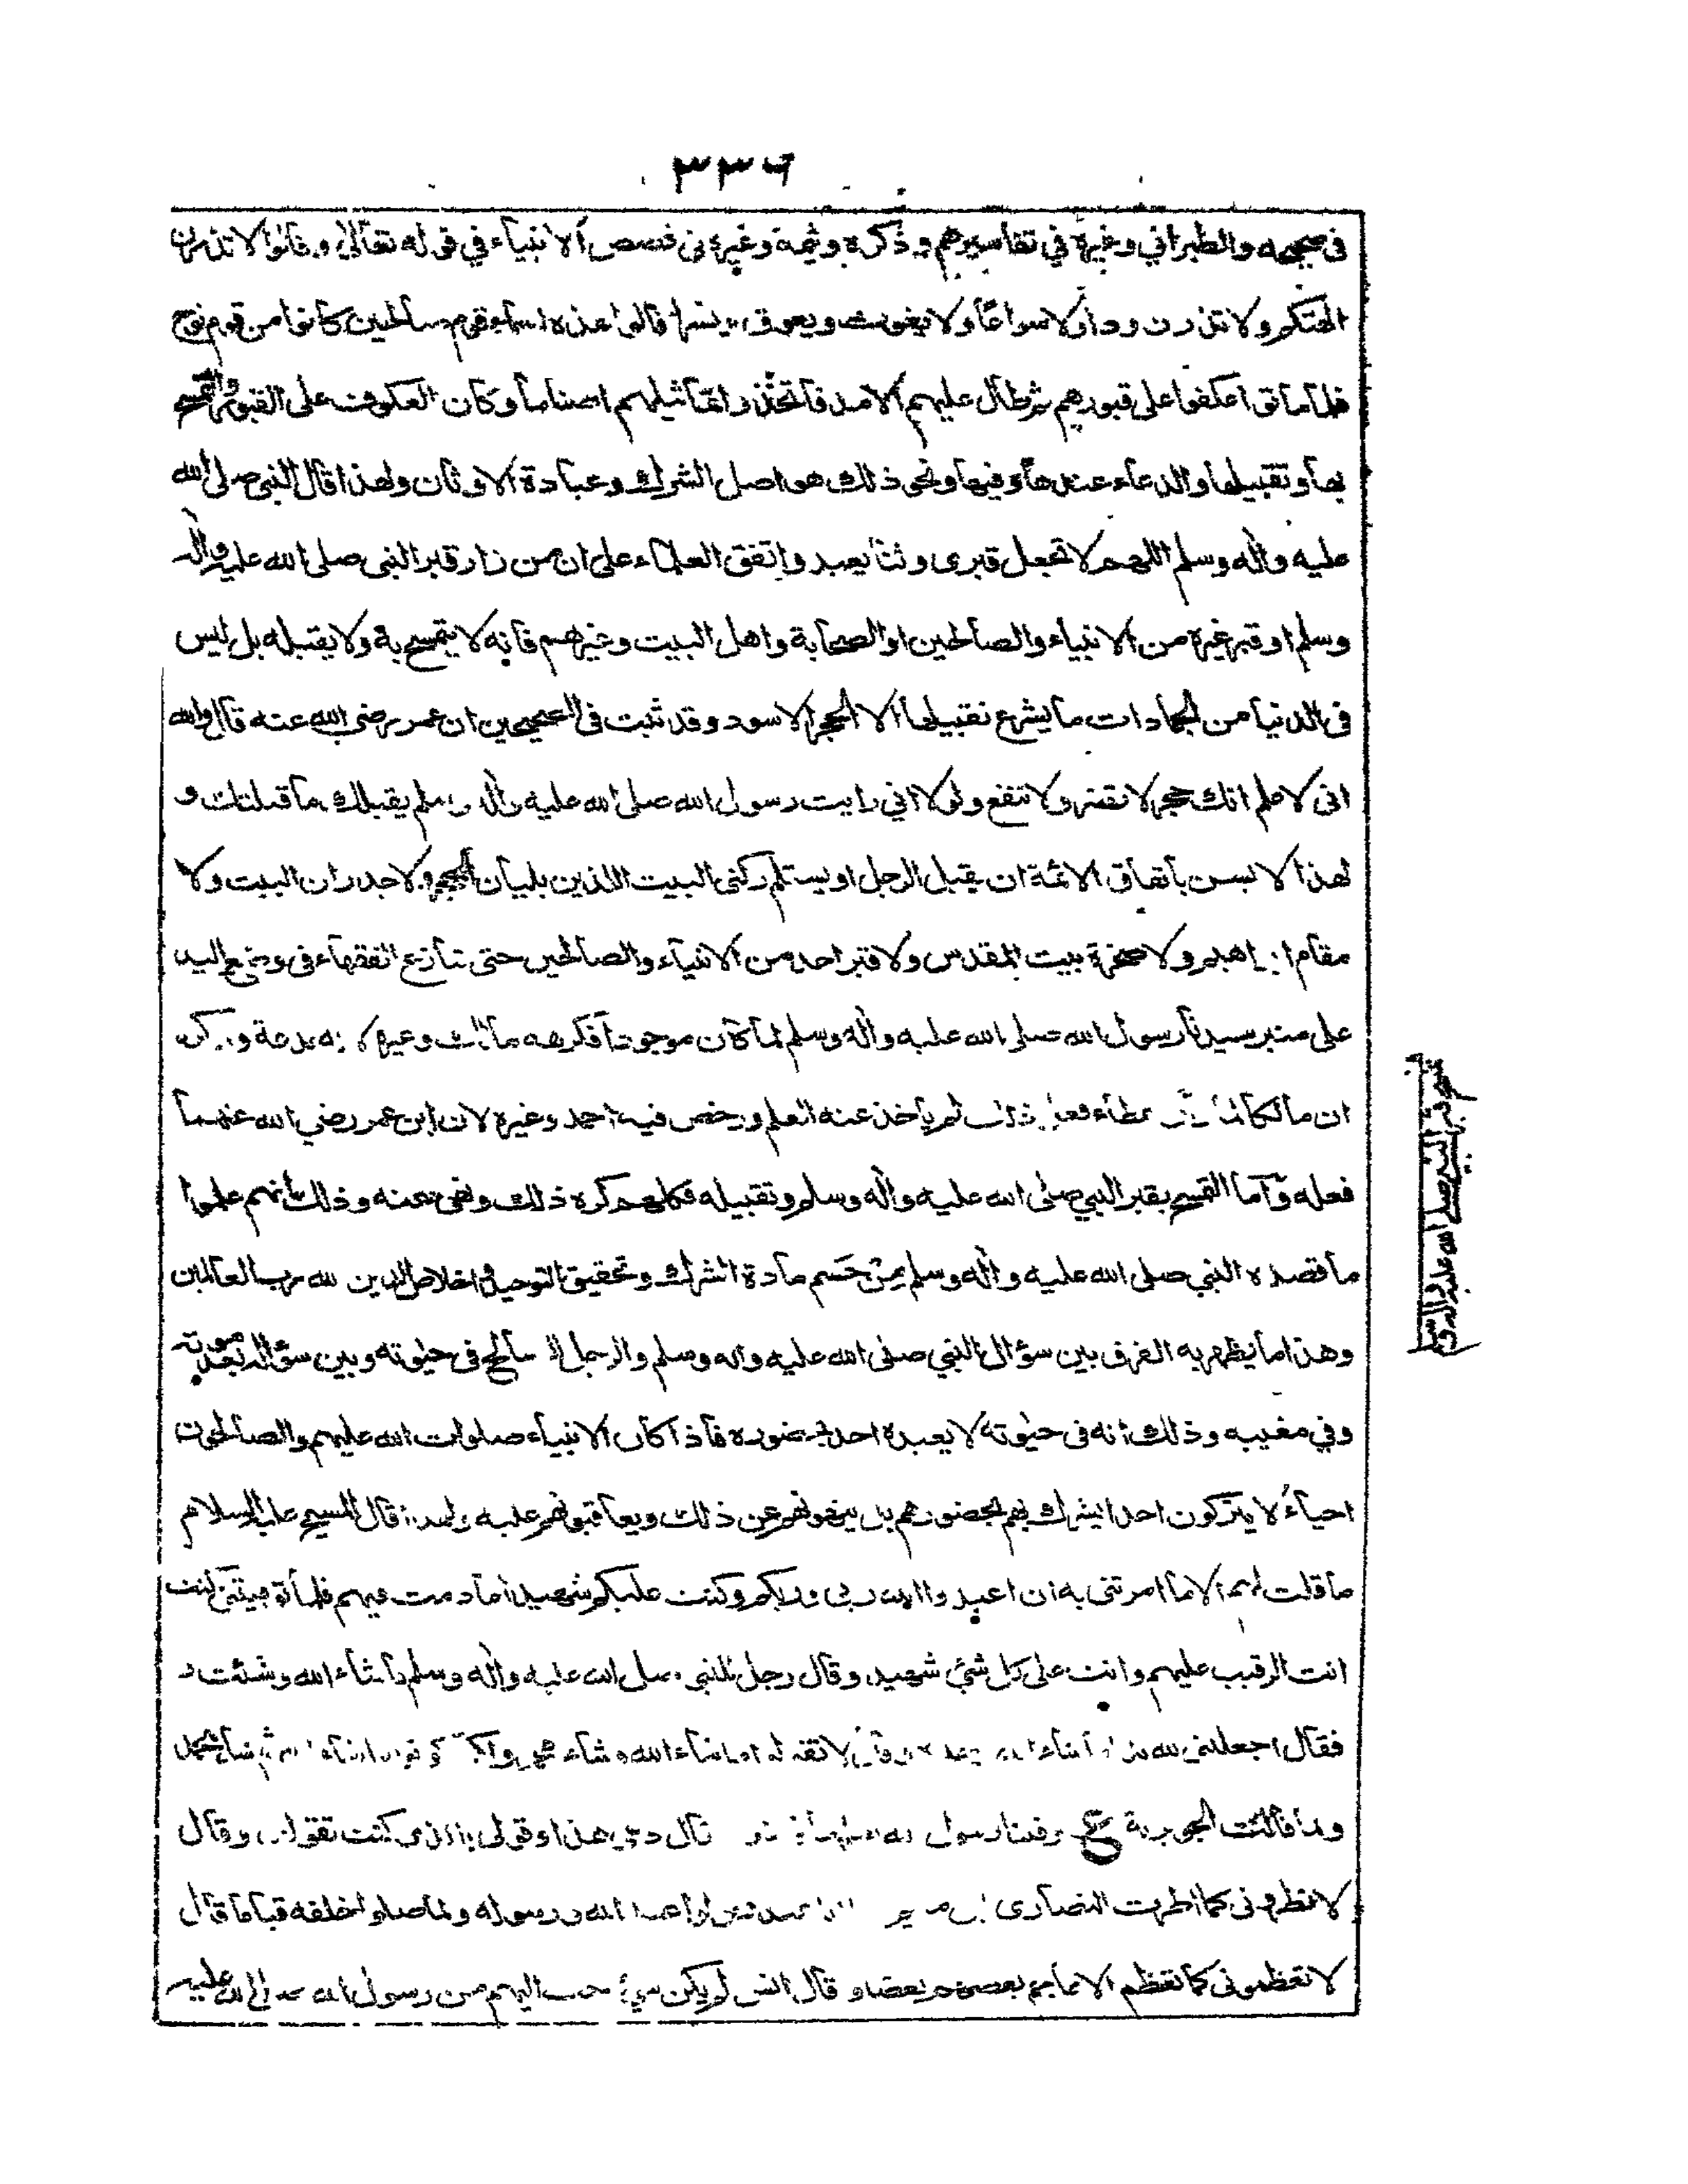 ٣٣٦
في صحيحه والطبراني وغيره في تفاسيرهم وذكره وثيمة وغيره في قصص الانبياء في قوله تعالى وقالوا لا تذرن
الهتكم ولا تذرن ودا ولا سواعًا ولا يغوث ويعوق ونسرا قالوا هذه اسماء قوم صالحين كانوا من قوم نوح
فلما ماتوا عكفوا على قبورهم ثم طال عليهم الامد فاتخذوا تماثيلهم اصناما وكان العكوف على القبور والتمسح
بها وتقبيلها والدعاء عندها وفيها ونحو ذلك هو اصل الشرك وعبادة الاوثان ولهذا قال النبي صلى الله
عليه واله وسلم اللهم لا تجعل قبرى وثنا يعبد واتفق العلماء على ان من زار قبر النبي صلى الله عليه واله
وسلم او قبر غيره من الانبياء والصالحين او الصحابة واهل البيت وغيرهم فانه لا يتمسح به ولا يقبله بل ليس
في الدنيا من الجمادات ما يشرع تقبيلها الا الحجر الاسود وقد ثبت في الصحيحين ان عمر رضي الله عنه قال والله
اني لاعلم انك حجر لا تضر ولا تنفع ولولا اني رايت رسول الله صلى الله عليه واله وسلم يقبلك ما قبلتك و
لهذا لا يسن باتفاق الائمة ان يقبل الرجل او يستلم ركنى البيت اللذين يليان الحجر ولا جدران البيت ولا
مقام ابراهيم ولا صخرة بيت المقدس ولا قبر احد من الانبياء والصالحين حتى تنازع الفقهاء فى وضع اليد
على منبر سيدنا رسول الله صلى الله عليه واله وسلم لما كان موجودا فكرهه مالك وغيره لانه بدعة وذكر
ان مالكا لما عطاء فعل ذلك لم يأخذ عنه العلم ورخص فيه احمد وغيره لان ابن عمر رضي الله عنهما
فعله واما التمسح بقبر النبي صلى الله عليه واله وسلم وتقبيله فكلهم كره ذلك ونهى عنه وذلك لانهم علموا
ما قصده النبي صلى الله عليه واله وسلم من حسم مادة الشرك وتحقيق التوحيد واخلاص الدين لله رب العالمين
وهذا ما يظهر به الفرق بين سؤال النبي صلى الله عليه واله وسلم والرجل الصالح في حيوته وبين سؤاله بعد موته
وفي مغيبه وذلك انه فى حيوته لا يعبده احد بحضوره فاذا كان الانبياء صلوات الله عليهم والصالحون
احياءً لا يتركون احدا يشرك بهم بحضورهم بل ينهونهم عن ذلك ويعاقبونهم عليه ولهذا قال المسيح عليه السلام
ما قلت لهم الا ما امرتنى به ان اعبدوا الله ربى وربكم وكنت عليكم شهيدا ما دمت فيهم فلما توفيتني كنت
انت الرقيب عليهم وانت على كل شئ شهيد وقال رجل للنبي صلى الله عليه واله وسلم ما شاء الله وشئت
فقال اجعلتنى لله ندا ما شاء الله وحده وقال لا تقولوا ما شاء الله وشاء محمد ولكن قولوا ما شاء الله ثم شاء محمد
ولما قالت الجويرية وفينا رسول الله قال دعي هذا وقولي بالذى كنت تقولين وقال
لا تطروني كما اطرت النصارى ابن مريم انا عبد فقولوا عبد الله ورسوله ولما صلوا خلفه قياما قال
لا تعظموني كما تعظم الاعاجم بعضهم بعضا وقال انس لم يكن شئ احب اليهم من رسول الله صلى الله عليه
قبر النبي صلى الله عليه واله